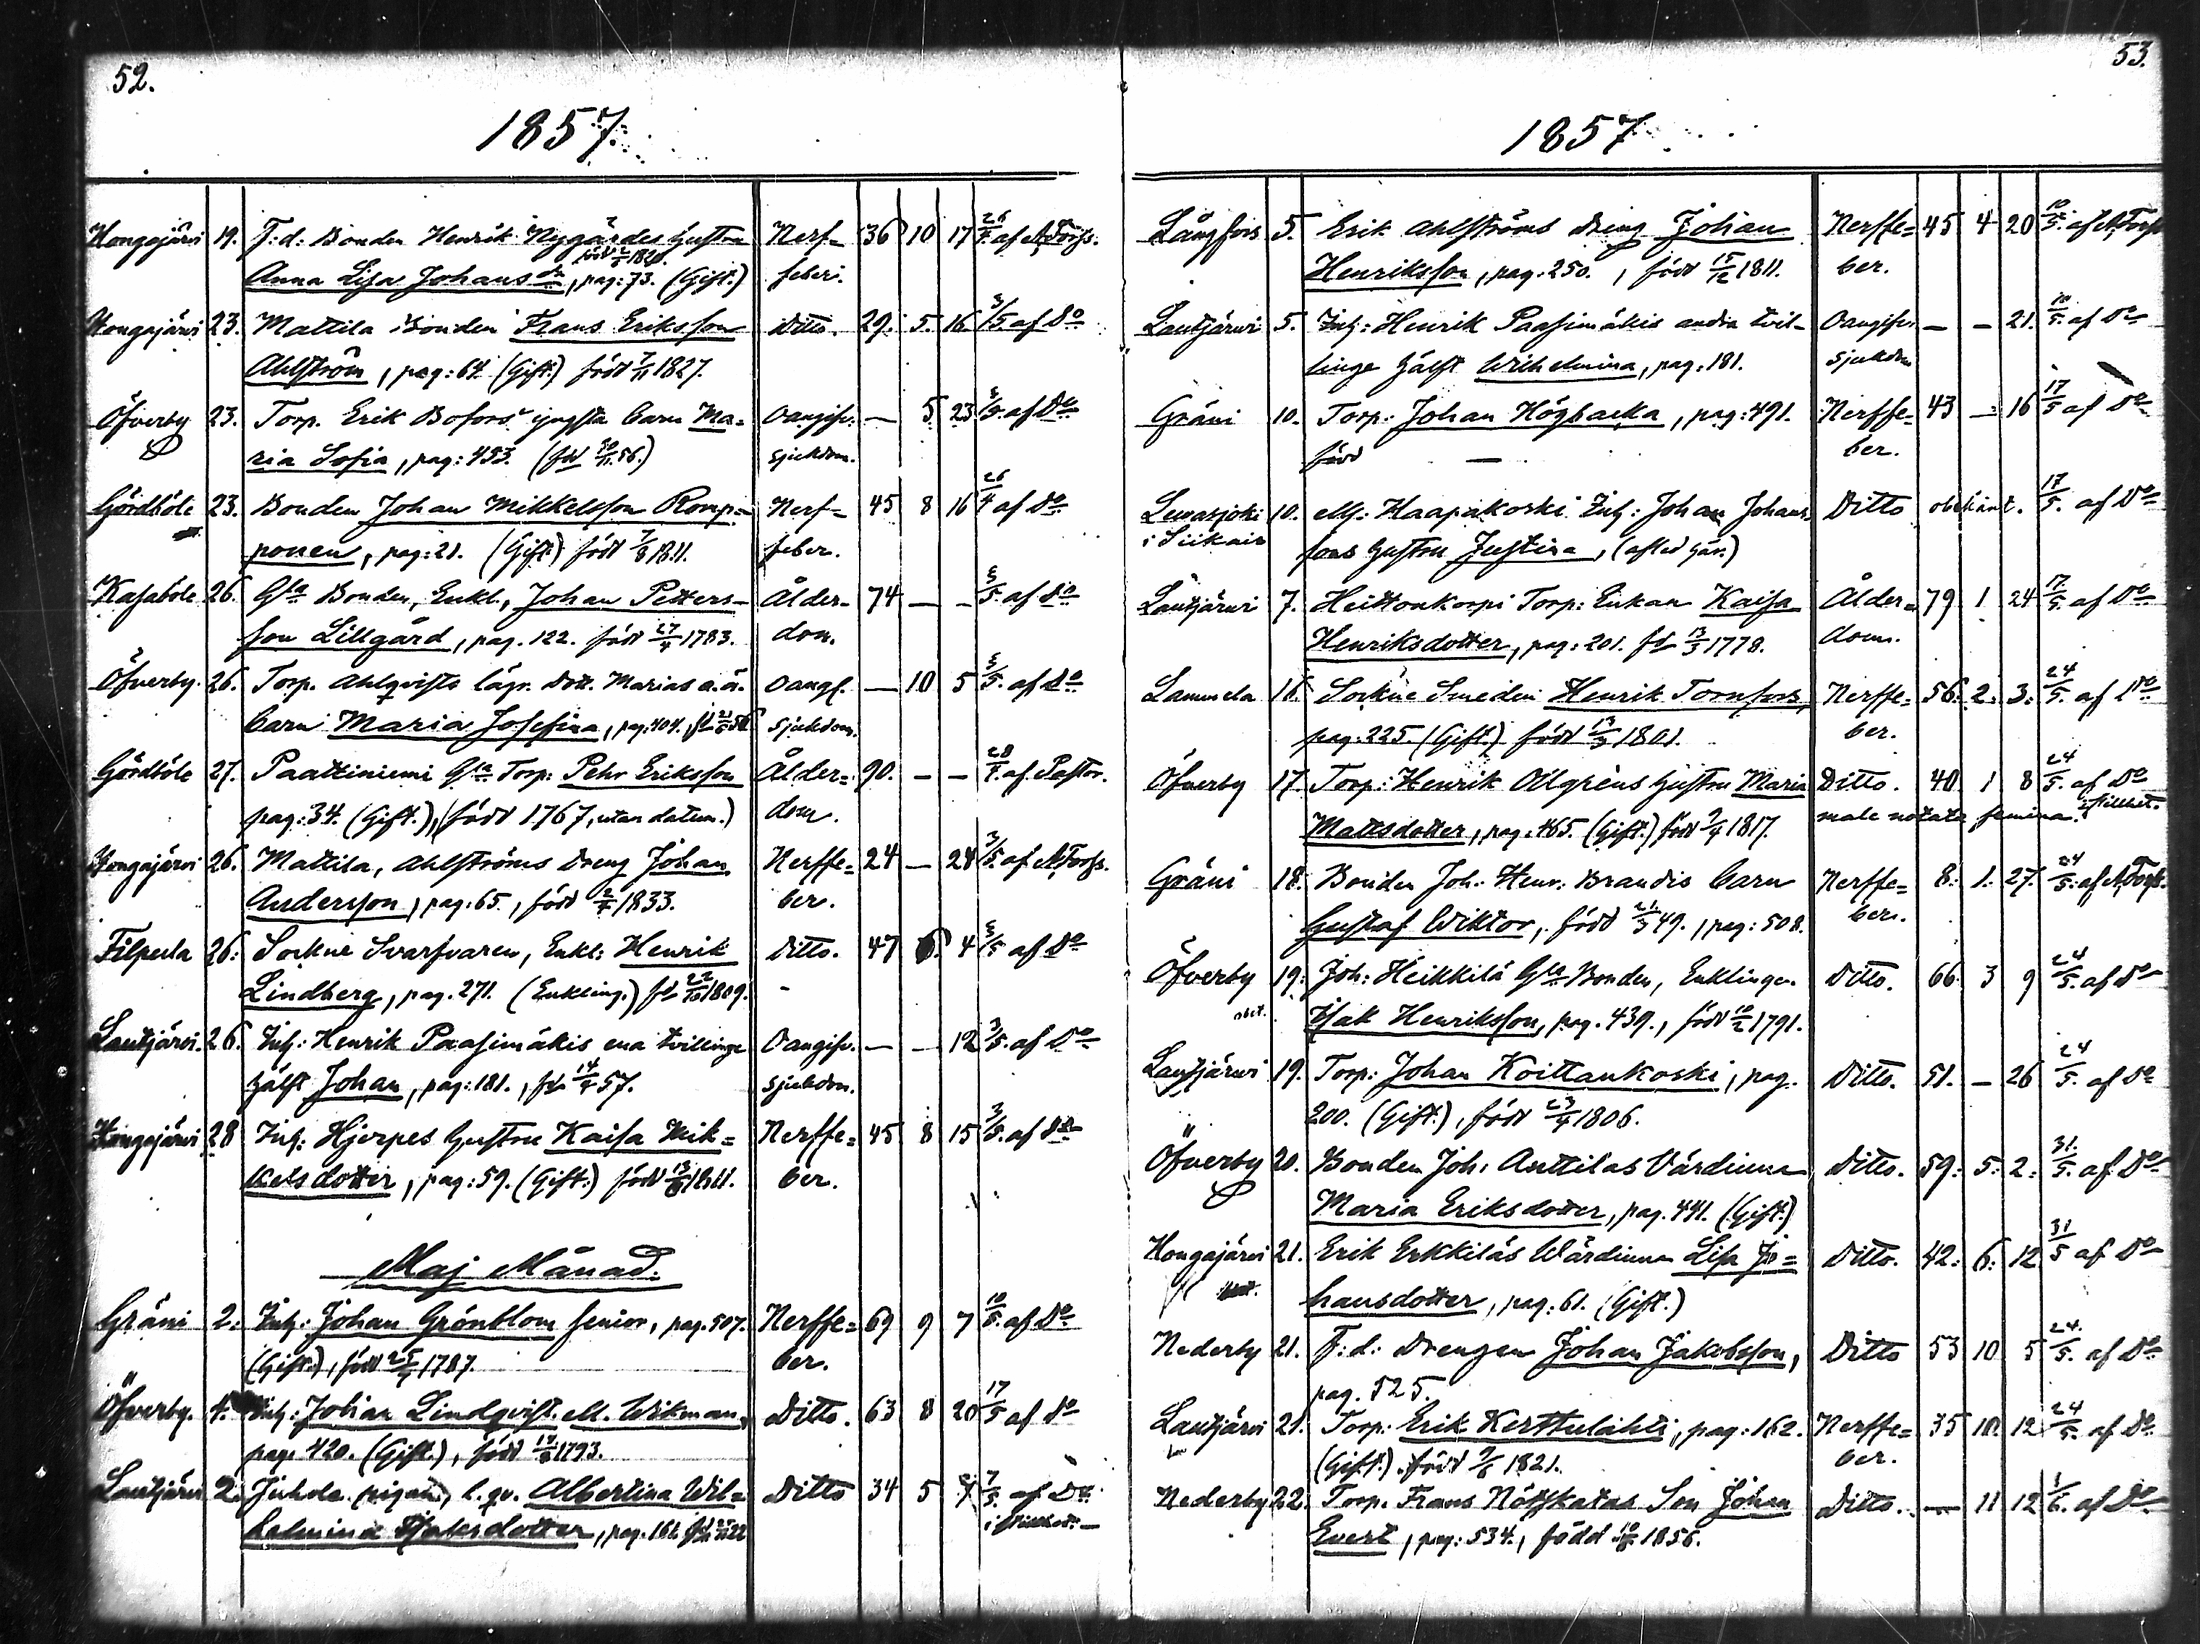 52.
1857.
Hongajärvi 19. F:d: Bonden Henrik Nygårdes hustru Nerf- 36 10 17 26/4. af A. Forss.
född 2/5 1820.
Anna Lisa Johans dr, pag: 73. (Gift.) feber.
Hongajärvi 23. Mattila Bonden Frans Eriksson Ditto. 29. 5. 16 3/5 af Do
Ahlström, pag: 64 (Gift.) född 7/11 1827.
Öfverby 23. Torp. Erik Bofors yngsta barn Ma- Oangifv. — 5 23 3/5. af Do
ria Sofia, pag: 453. (föd 30/11.56.) sjukdom.
Gördböle 23. Bonden Johan Mikkelsson Romp- Nerf- 45 8 16 26/4 af Do
ponen, pag: 21. (Gift) född 7/8 1811. feber.
Kasaböle 26. Gla Bonden, Enkl., Johan Petters- Ålder- 74 — — 3/5. af Do
son Lillgård, pag. 122. född 27/4 1783. dom.
Öfverby. 26. Torp. Ahlqvists lägr. Dott. Marias o.ä. Oangf. — 10 5 3/5. af Do
barn Maria Josefina, pag. 404. sjukdom.
Gördböle 27. Paattiniemi Gla Torp: Pehr Eriksson Ålder- 90. — — 28/4. af Pastor.
pag: 34. (Gift.), (född 1767, utan datum.) dom.
Hongajärvi 26. Mattila, Ahlströms Dreng Johan Nerffe= 24 — 24 3/5. af A Forss.
Andersson, pag: 65., född 2/4 1833. ber.
Filpula 26. Sockne Svarfvaren, Enkl: Henrik Ditto. 47 6. 4 3/5 af Do
Lindberg, pag. 271. (Enkling.) fd 22/10 1809.
Lautjärvi. 26. Inh: Henrik Paasimäkis ena tvillinge Oangifv. — — 12 3/5. af Do
hälft Johan, pag: 181., fdr 14/4 57. sjukdom.
Hongajärvi 28 Inh: Hjerpes hustru Kaisa Mik= Nerffe= 45 8 15 3/5. af Do
kelsdotter, pag: 59. (Gift.) född 13/8 1811. ber.
Maj Månad.
Gräni 2. Inh: Johan Grönblom senior, pag. 507. Nerffe= 69 9 7 10/5. af Do
(Gift.), född 25/7 1787. ber.
Öfverby. 4. Inh: Johan Lindqvist. M. Wikman, Ditto. 63 8 20 17/5 af Do
pag. 420. (Gift.), född 1793.
Lautjärvi 2. Juhola (pigan) l. qv. Albertina Wil= Ditto 34 5 7/5. af Do
helmina dotter, pag. 161. i stillhet. —
53.
1857
Långfors 5. Erik Ahlströms Dreng Johan Nerffe= 45 4 20 10/5. af A Forss
Henriksson, pag. 250., född 15/12 1811. ber.
Lautjärvi 5. Inh: Henrik Paasimäkis andra tvil- Oangifv. — — 21. 10/5. af Do
linge hälft Wilhelmina, pag. 181. sjukdom
Gräni 10. Torp: Johan Högbacka, pag: 491. Nerffe= 43 — 16 17/5 af Do
född — ber.
Leväsjoki 10. M: Haapakoski Inh: Johan Johans Ditto obekant. 17/5. af Do
i Siikais sons hustru Justina, (afled här.)
Lautjärvi 7. Heittonkorpi Torp: Enkan Kaisa Ålder= 79 1 24 17/5. af Do
Henriksdotter, pag: 201. fd 13/3 1778. dom.
Lammela 16. Sockne Smeden Henrik Tornfors, Nerffe= 56. 2. 3. 24/5. af Do
pag. 225. (Gift.) född 13/3 1801. ber.
Öfverby 17. Torp: Henrik Ollgréns hustru Maria Ditto. 40 1 8 24/5. af Do
Mattsdotter, pag. 465. (Gift.) född 9/4 1817. male notata femina. i stillhet.
Gräni 18. Bonden Joh: Henr: Brandis barn Nerffe= 8. 1. 27. 24/5. af A Forss.
Gustaf Wiktor, född 21/3 49., pag: 508. ber.
Öfverby 19. Joh: Heikkilä Gla Bonden, Enklingen Ditto. 66 3 9 24/5. af Do
Isak Henriksson, pag. 439., född 10/2 1791.
Lautjärvi 19. Torp: Johan Koittankoski, pag. Ditto. 51. — 26 24/5. af Do
200. (Gift.), född 23/4 1806.
Öfverby 20. Bonden Joh: Anttilas Värdinna Ditto. 59. 5. 2. 31/5. af Do
Maria Eriksdotter, pag. 441. (Gift.)
Hongajärvi 21. Erik Erkkiläs Wärdinna Lisa Jo= Ditto. 42. 6. 12 31/5 af Do
hansdotter, pag: 61. (Gift.)
Nederby 21. F:d: Drengen Johan Jakobsson, Ditto 53 10 5 24/5. af Do
pag. 525.
Lautjärvi 21. Torp: Erik Kerttulahti, pag: 162. Nerffe= 35 10. 12 24/5. af Do
(Gift.) född 9/6 1821. ber.
Nederby 22. Torp. Frans Nötskatas Son Johan Ditto. — 11 12 1/6. af Do
Evert, pag: 534., född 1856.